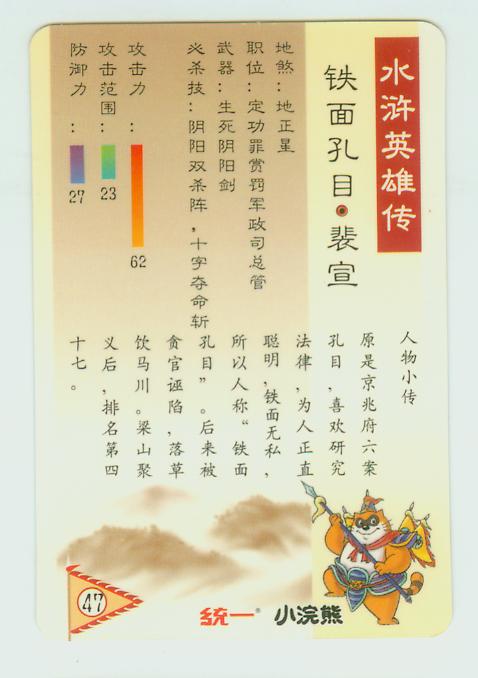 水浒英雄传
铁面孔目·裴宣
地煞：地正星
职位：定功罪赏罚军政司总管
武器：生死阴阳剑
必杀技：阴阳双杀阵，十字夺命斩
攻击力：
62
攻击范围：
23
防御力：
27
人物小传
原是京兆府六案
孔目，喜欢研究
法律，为人正直
聪明，铁面无私，
所以人称“铁面
孔目”。后来被
贪官诬陷，落草
饮马川。梁山聚
义后，排名第四
十七。
47
统一® 小浣熊